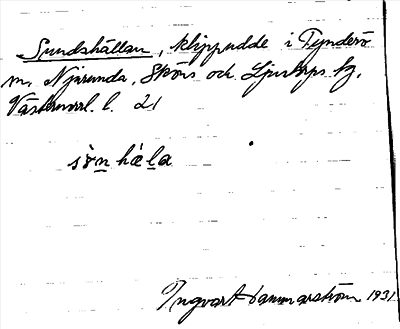 Sundshällan, klippudde i Tynderö
m. Njurunda, Sköns och Ljustorps tg,
Västernorrl. l. 21
sɷ̀n hɛ̀la
Ingvar Hammarström 1931